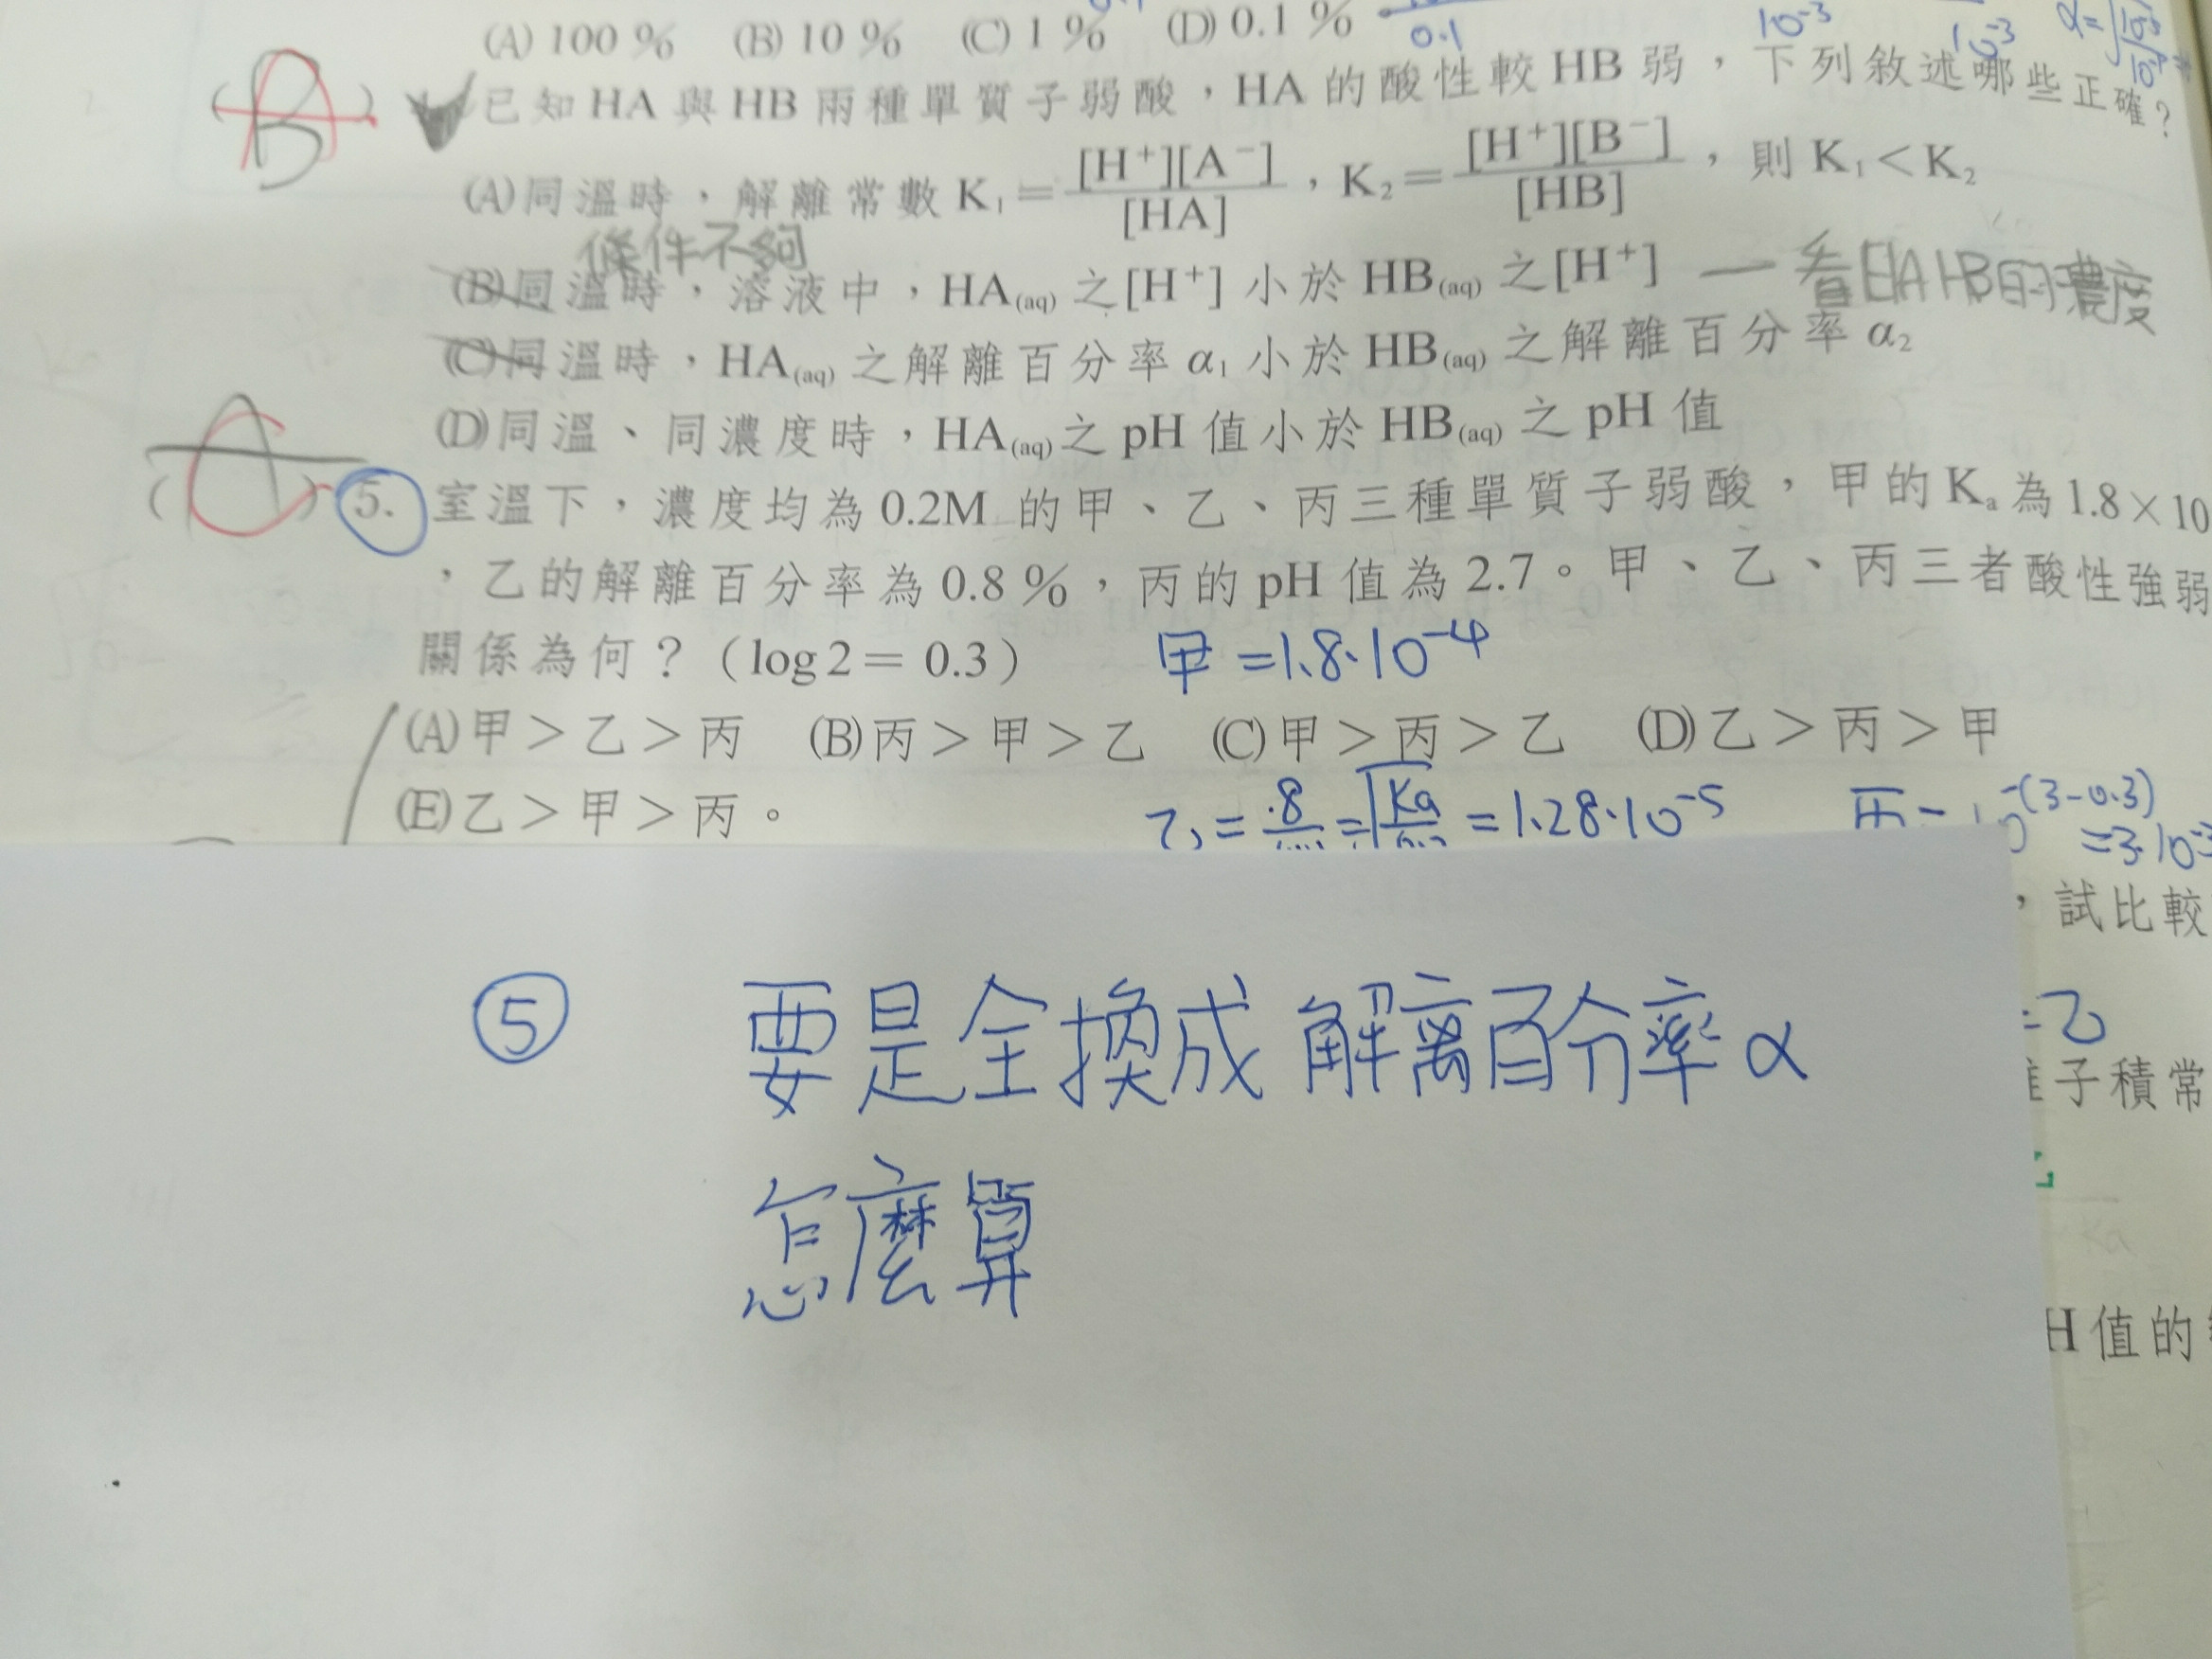 (A) 100 % (B) 10 % (C) 1 % (D) 0.1 %
0.1
10⁻³
B
已知 HA 與 HB 兩種單質子弱酸，HA 的酸性較 HB 弱，下列敘述哪些正確？
(A)同溫時，解離常數 K₁＝[H⁺][A⁻]/[HA]，K₂＝[H⁺][B⁻]/[HB]，則 K₁＜K₂
條件不夠
(B)同溫時，溶液中，HA(aq) 之[H⁺] 小於 HB(aq) 之[H⁺] 一看HA HB的濃度
(C)同溫時，HA(aq) 之解離百分率 α₁ 小於 HB(aq) 之解離百分率 α₂
(D)同溫、同濃度時，HA(aq)之 pH 值小於 HB(aq) 之 pH 值
5. 室溫下，濃度均為 0.2M 的甲、乙、丙三種單質子弱酸，甲的 Kₐ 為 1.8×10
，乙的解離百分率為 0.8 %，丙的 pH 值為 2.7。甲、乙、丙三者酸性強弱
關係為何？（log 2＝ 0.3） 甲 =1.8·10⁻⁴
(A)甲＞乙＞丙 (B)丙＞甲＞乙 (C)甲＞丙＞乙 (D)乙＞丙＞甲
(E)乙＞甲＞丙。
乙 = .8 = √Ka = 1.28·10⁻⁵ 丙 = 10^-(3-0.3)
=3·10
，試比較
⑤ 要是全換成 解離百分率 α
=乙
子積常
怎麼算
H 值的